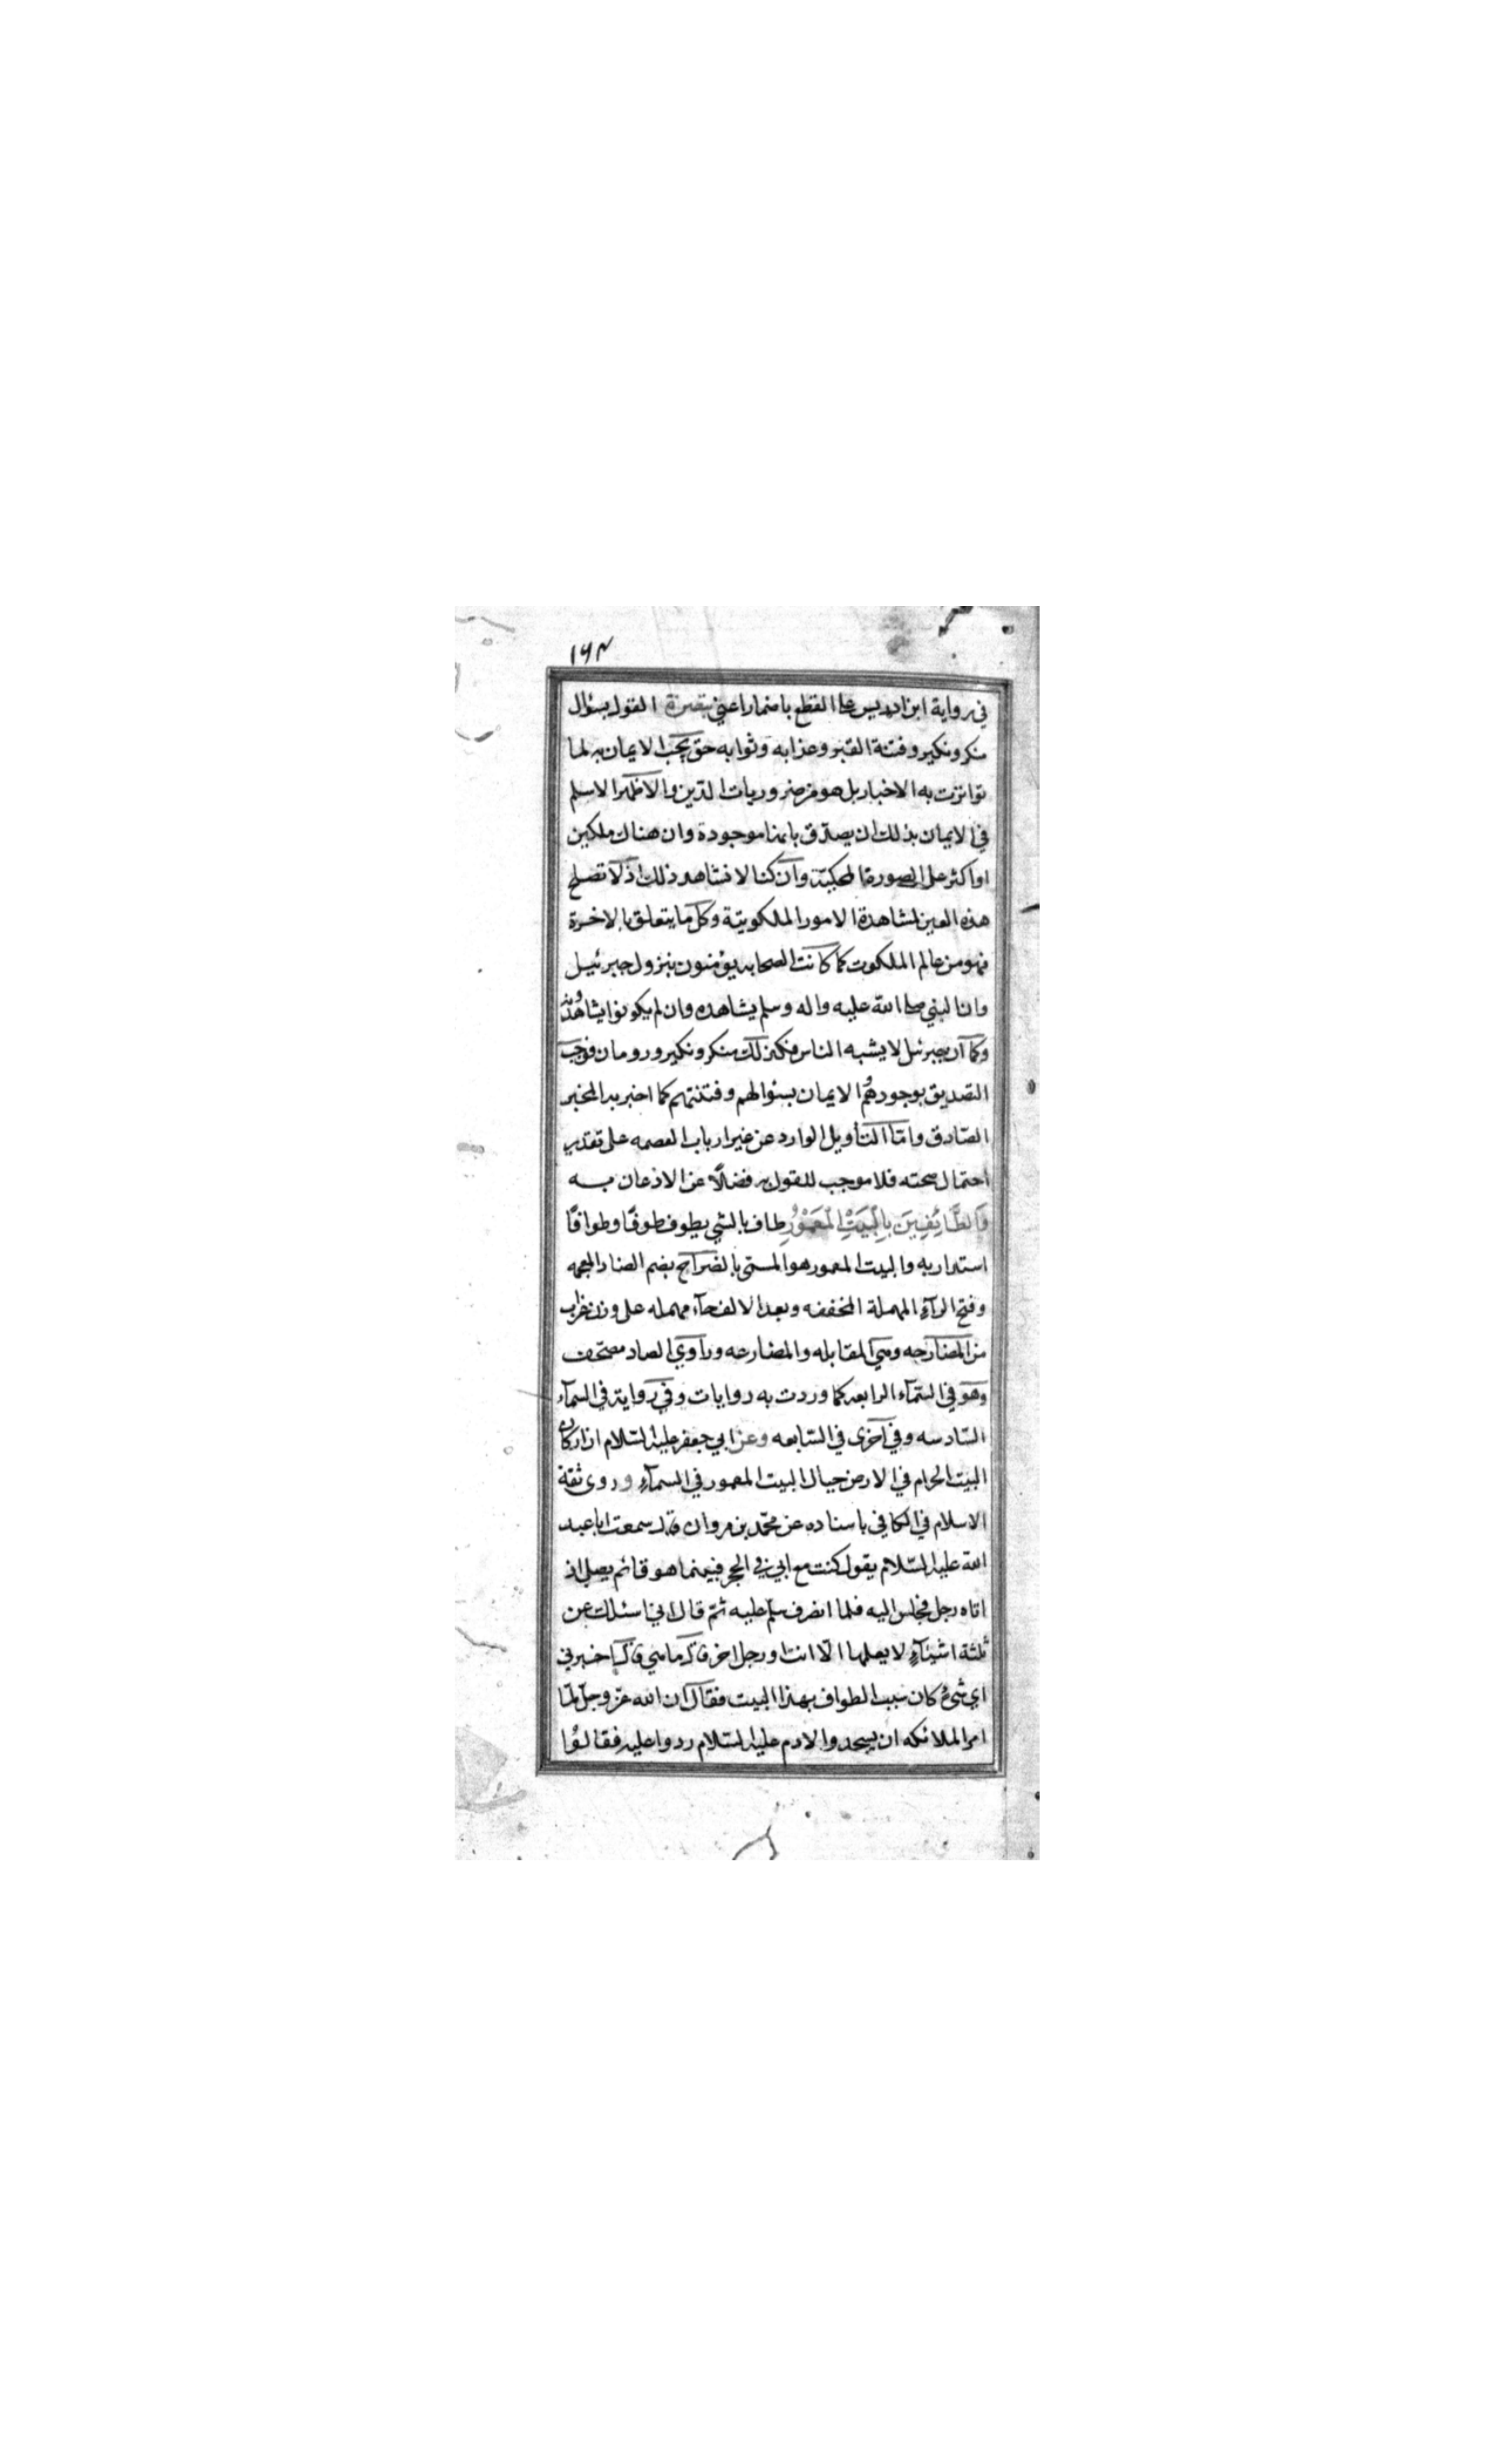 ١٦٣
في رواية ابن ادريس على القطع باضمار اعني تبصرة القول بسؤال
منكر ونكير وفتنة القبر وعذابه وثوابه حق يجب الايمان به لما
تواترت به الاخبار بل هو من ضروريات الدّين والاظهر الاسلم
في الايمان بذلك ان يصدّق بانها موجودة وان هناك ملكين
او اكثر على الصورة المحكيّة وان كنا لا نشاهد ذلك اذ لا تصلح
هذه العين لمشاهدة الامور الملكوتيّة وكل ما يتعلق بالاخرة
فهو من عالم الملكوت كما كانت الصحابه يؤمنون بنزول جبرئيل
وان النبي صلى الله عليه واله وسلم يشاهده وان لم يكونوا يشاهدونه
وكما ان جبرئيل لا يشبه الناس فكذلك منكر ونكير ورومان فوجب
التصديق بوجودهم والايمان بسئوالهم وفتنتهم كما اخبر به المخبر
الصّادق وامّا التأويل الوارد عن غير ارباب العصمه على تقدير
احتمال صحته فلا موجب للقول به فضلاً عن الاذعان به
وَالطَّائِفِينَ بِالْبَيْتِ الْمَعْمُوْرِ طاف بالشي يطوف طوفًا وطوافًا
استدار به والبيت المعمور هو المسمّى بالضراح بضم الضاد المعجمه
وفتح الرآء المهملة المخففه وبعد الالف حآء مهمله على وزن غراب
من المضارحه وهي المقابله والمضارعه وراوي الصاد مصحّف
وهو في السّمآء الرابعه كما وردت به روايات وفي رواية في السمآء
السّادسه وفي اخرى في السّابعه وعن ابي جعفر عليه السّلام ان اركان
البيت الحرام في الارض حيال البيت المعمور في السمآء وروى ثقة
الاسلام في الكافي باسناده عن محمّد بن مروان قال سمعت ابا عبد
الله عليه السّلام يقول كنت مع ابي في الحجر فبينما هو قائم يصلي اذ
اتاه رجل فجلس اليه فلما انصرف سلّم عليه ثمّ قال اني اسئلك عن
ثلثة اشيآء لا يعلمها الّا انت ورجل اخر قال ما هي قال اخبرني
اي شئ كان سبب الطواف بهذا البيت فقال ان الله عزّ وجلّ لمّا
امر الملائكه ان يسجدوا لادم عليه السّلام ردوا عليه فقالوا